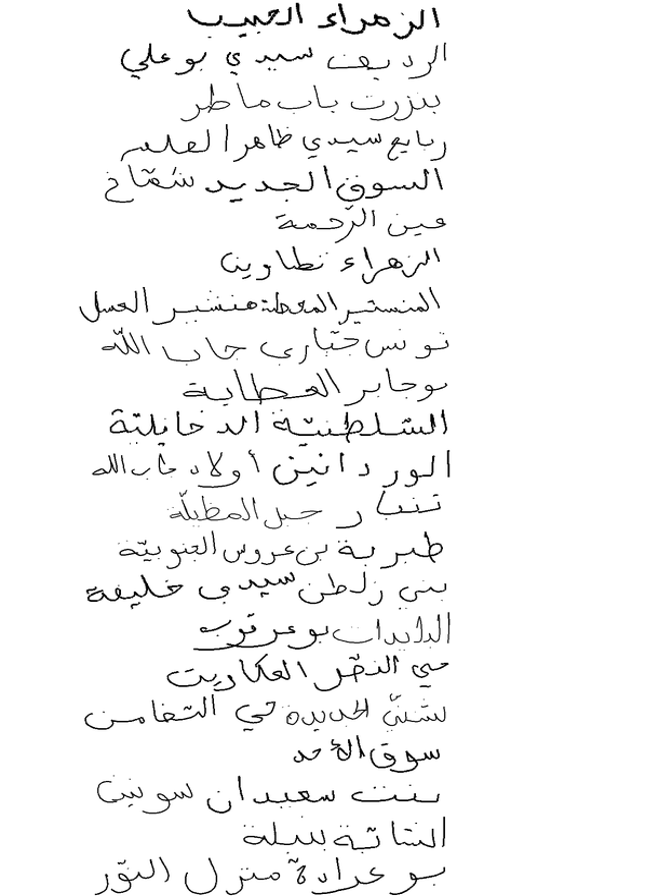 الزهراء الحبيب
الرديف سيدي بوعلي
بنزرت باب ماطر
ربايع سيدي ظاهر العلمة
السوق الجديد شمّاخ
عين الرّحمة
الزهراء تطاوين
المنستير المحطة هنشير العسل
تونس خبّاري جاب اللّه
بوجابر العطاية
السّلطنيّة الدخايليّة
الوردانين أولاد جاب الله
تنبار جبل المظيلّة
طبربة بن عروس الجنوبيّة
بني زلطن سيدي خليفة
البلايدات بوعرقوب
حي النصر العكاريت
شنّي الجديدة حي التضامن
سوق الأحد
بنت سعيدان سونين
الشاتة نبيلة
بوعرادة منزل النّور